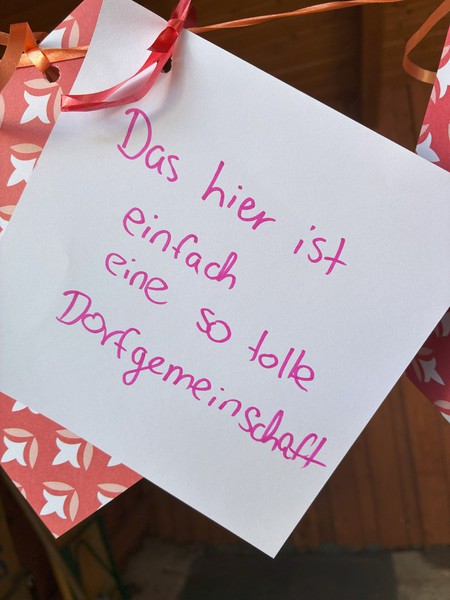 Das hier ist
einfach
eine so tolle
Dorfgemeinschaft